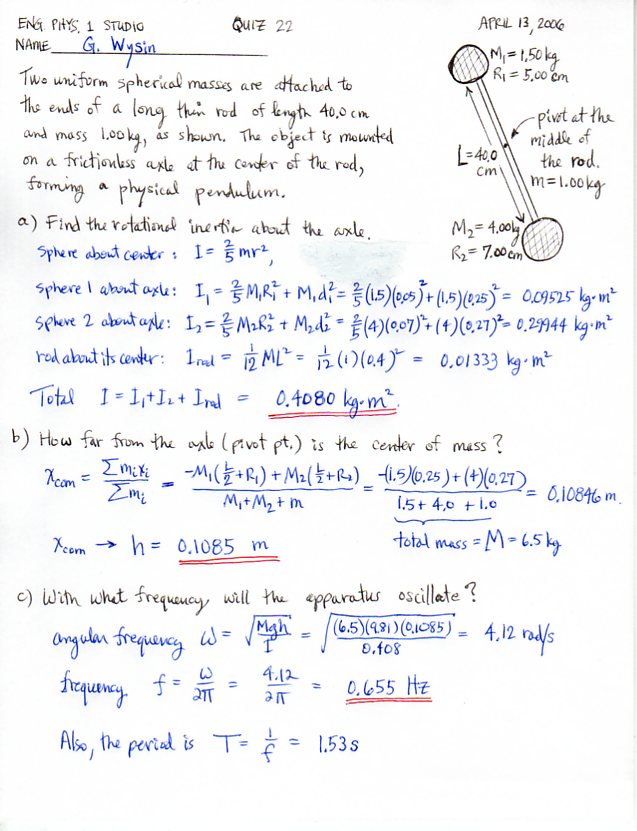 ENG. PHYS. 1 STUDIO QUIZ 22 APRIL 13, 2006
NAME G. Wysin
M₁ = 1.50 kg
R₁ = 5.00 cm
Two uniform spherical masses are attached to
the ends of a long thin rod of length 40.0 cm
and mass 1.00 kg, as shown. The object is mounted
on a frictionless axle at the center of the rod,
forming a physical pendulum.
pivot at the
middle of
the rod.
m = 1.00 kg
L = 40.0
cm
M₂ = 4.00 kg
R₂ = 7.00 cm
a) Find the rotational inertia about the axle.
sphere about center : I = 2/5 mr²,
sphere 1 about axle: I₁ = 2/5 M₁R₁² + M₁d₁² = 2/5 (1.5)(0.05)² + (1.5)(0.25)² = 0.09525 kg·m²
sphere 2 about axle: I₂ = 2/5 M₂R₂² + M₂d₂² = 2/5 (4)(0.07)² + (4)(0.27)² = 0.29944 kg·m²
rod about its center: I_rod = 1/12 ML² = 1/12 (1)(0.4)² = 0.01333 kg·m²
Total I = I₁ + I₂ + I_rod = 0.4080 kg·m².
b) How far from the axle (pivot pt.) is the center of mass?
x_com = Σmᵢxᵢ / Σmᵢ = -M₁(L/2 + R₁) + M₂(L/2 + R₂) / M₁ + M₂ + m = -(1.5)(0.25) + (4)(0.27) / 1.5 + 4.0 + 1.0 = 0.10846 m.
total mass = M = 6.5 kg
x_com → h = 0.1085 m
c) With what frequency will the apparatus oscillate?
angular frequency ω = √(Mgh / I) = √((6.5)(9.81)(0.1085) / 0.408) = 4.12 rad/s
frequency f = ω/2π = 4.12/2π = 0.655 Hz
Also, the period is T = 1/f = 1.53 s